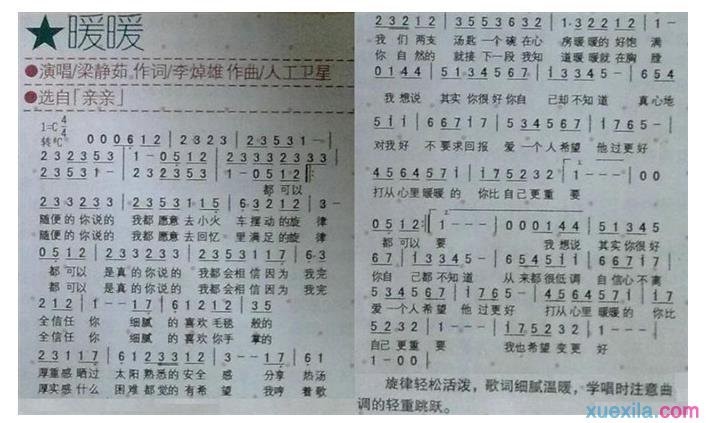 ★暖暖
●演唱/梁静茹 作词/李焯雄 作曲/人工卫星
●选自「亲亲」
1=C 4/4
转♯C 0 0 0 6 1 2 | 2 3 2 3 | 2 3 5 3 1 — |
2 3 2 3 5 3 | 1 — 0 5 1 2 | 2 3 3 3 2 3 3 3 |
2 3 5 3 1 — | 2 3 2 3 5 3 | 1 — 0 5 1 2 :|
都 可以
2 3 3 2 3 3 | 2 3 5 3 1 1 5 | 6 3 2 1 2 | 3 —
随便的 你说的 我都 愿意 去小火 车 摆动的旋 律
随便的 你说的 我都 愿意 去回忆 里 满足的旋 律
0 5 1 2 | 2 3 3 2 3 3 | 2 3 5 3 1 1 7 | 6 1
都 可以 是真的 你说的 我都会相信因为 我完
都 可以 是真的 你说的 我都会相信因为 我完
2 1 2 | 1 — — 1 7 | 6 1 2 1 2 | 3 5
全信任 你 细腻 的 喜欢 毛毯 般的
全信任 你 细腻 的 喜欢 你手 掌的
2 3 1 1 7 | 2 2 3 3 2 1 2 | 3 — — 1 7 | 6 1
厚重感 晒过 太阳 熟悉的安全 感 分享 热汤
厚实感 什么 困难 都觉的有希 望 我哼 着歌
2 3 2 1 2 | 3 5 5 3 6 3 2 | 1· 3 2 2 1 2 | 1 —
我 们 两支 汤匙 一个 碗 在心 房暖暖的 好饱 满
你 自然的 就接 下一段 我知 道暖暖就 在胸 膛
0 1 4 4 | 5 1 3 4 5 6 7 | 1 3 3 4 5 1 5 | 6 4
我 想说 其实 你很 好 你自 己却不知 道 真心地
5 1 1 | 6 6 7 1 6 7 | 5 3 4 5 6 7 | 1 7 6 5 —
对我好 不 要求回报 爱 一个人希望 他过更好
4 5 6 4 5 7 1 | 1 7 5 2 3 2 | 1 — — — | — 0 0
打从心里暖暖的 你比自己更重 要
0 5 1 2 :| 1 — — — | — 0 1 4 4 | 5 1 3 4 5
都 可以 要 我想说 其实你很好
6 7 | 1 3 3 4 5 1 5 | 6 4 5 5 1 1 | 6 6 7 1 7
你自 己都不知道 从 来都很低调 自信心不离
5 3 4 5 6 7 | 1 7 6 5 — | 4 5 6 4 5 7 1 | 1 7
爱 一个人希望 他 过更好 打从心里 暖暖的 你比
5 2 3 2 | 1 — — — | 1 7 5 2 3 2 | 1 — — — |
自己 更重 要 我也希望 变更 好
1 — 0 0 |
旋律轻松活泼，歌词细腻温暖，学唱时注意曲
调的轻重跳跃。
xuexila.com